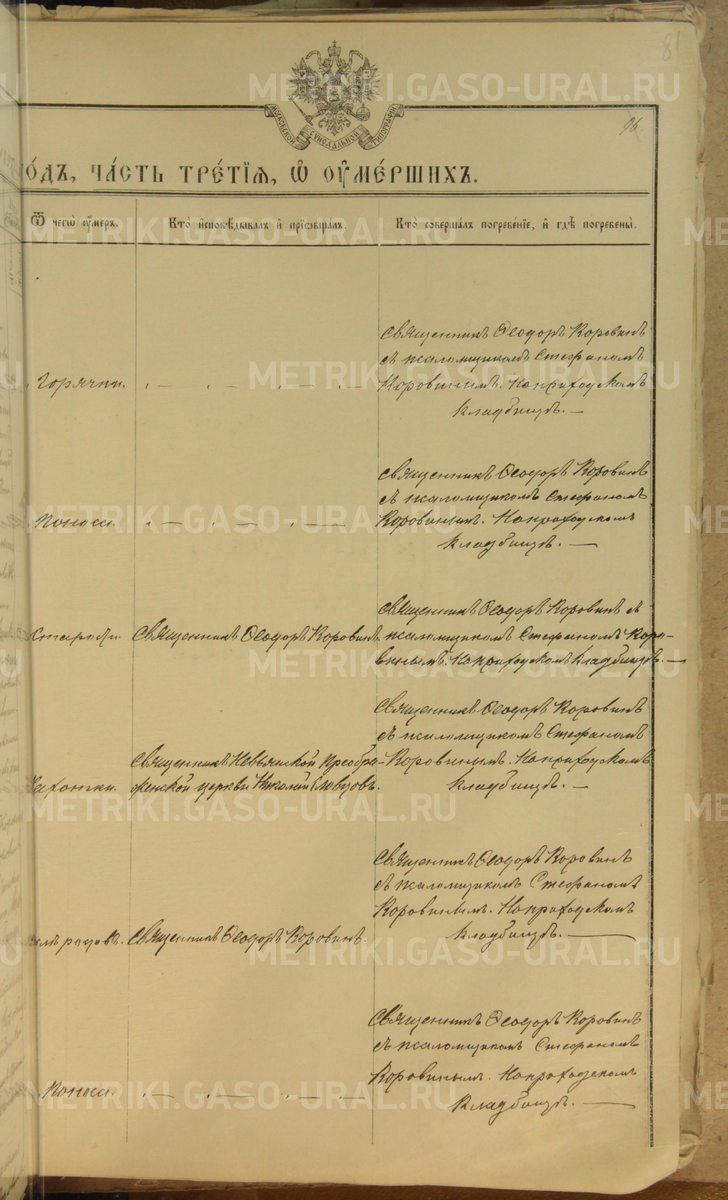 81
96
МОСКОВСКОЙ СѴНОДАЛЬНОЙ ТИПОГРАФІИ
О́ДЪ, ЧА́СТЬ ТРЕ́ТІѦ, Ѡ҆ ОУ҆МЕ́РШИХЪ.
Ѿ чегѡ̀ ᲂу҆́меръ.
Кто̀ и҆сповѣ́дывалъ и҆ прїѡбща́лъ.
Кто̀ соверша́лъ погребе́нїе, и҆ гдѣ̀ погребены̀.
Горячки.
Священникъ Ѳеодоръ Коровинъ
съ псаломщикомъ Стефаномъ
Коровинымъ. На приходскомъ
кладбищѣ. —
Поноса.
Священникъ Ѳеодоръ Коровинъ
съ псаломщикомъ Стефаномъ
Коровинымъ. На приходскомъ
кладбищѣ. —
Старости.
Священникъ Ѳеодоръ Коровинъ.
Священникъ Ѳеодоръ Коровинъ съ
псаломщикомъ Стефаномъ Коро-
винымъ. На приходскомъ кладбищѣ. —
Чахотки.
Священникъ Невьянской Преобра-
женской церкви Николай Словцовъ.
Священникъ Ѳеодоръ Коровинъ
съ псаломщикомъ Стефаномъ
Коровинымъ. На приходскомъ
кладбищѣ. —
родовъ.
Священникъ Ѳеодоръ Коровинъ.
Священникъ Ѳеодоръ Коровинъ
съ псаломщикомъ Стефаномъ
Коровинымъ. На приходскомъ
кладбищѣ. —
Поноса.
Священникъ Ѳеодоръ Коровинъ
съ псаломщикомъ Стефаномъ
Коровинымъ. На приходскомъ
кладбищѣ. —
METRIKI.GASO-URAL.RU